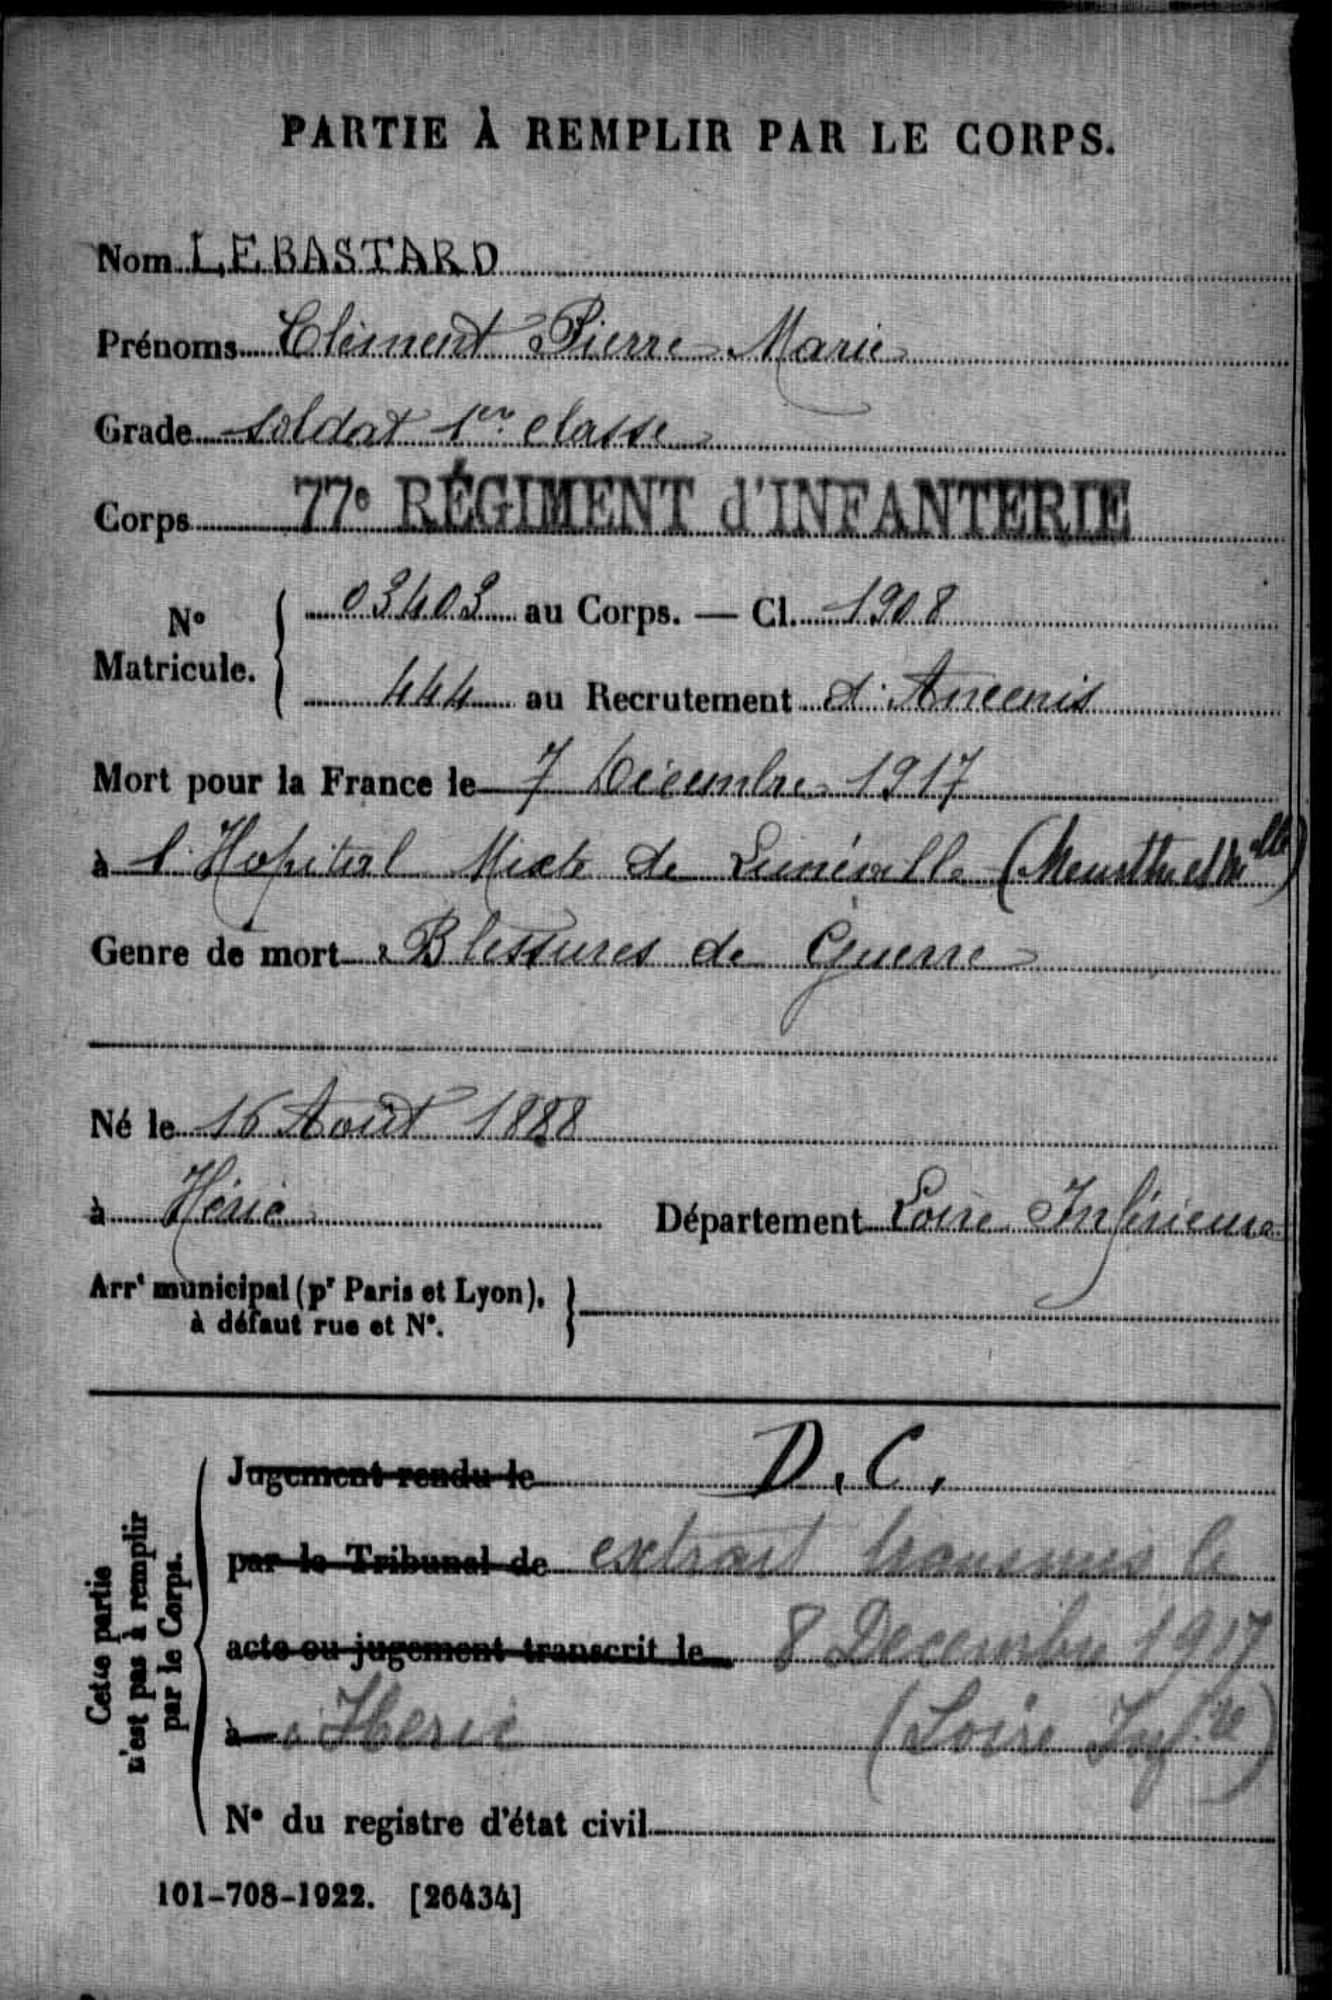 PARTIE À REMPLIR PAR LE CORPS.
Nom LEBASTARD
Prénoms Clément Pierre Marie
Grade soldat 1re classe
Corps 77e RÉGIMENT d'INFANTERIE
No Matricule. { 03403 au Corps. — Cl. 1908
444 au Recrutement d'Ancenis
Mort pour la France le 7 Décembre 1917
à l'Hopital Mixte de Lunéville (Meurthe et Mlle)
Genre de mort Blessures de Guerre
Né le 16 Août 1888
à Héric Département Loire Inférieure
Arrt municipal (pr Paris et Lyon), à défaut rue et No. }
Cette partie n'est pas à remplir par le Corps.
Jugement rendu le D.C.
par le Tribunal de extrait transmis le
acte ou jugement transcrit le 8 Decembre 1917
à à Heric (Loire Infre)
No du registre d'état civil
101-708-1922. [26434]